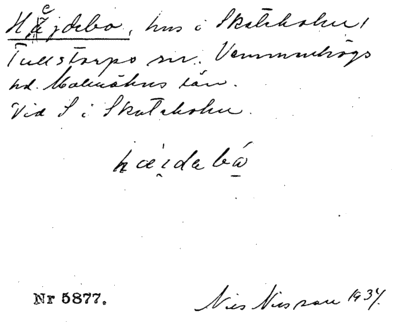 Hejdebo, hus i Skateholm,
Tullstorps sn. Vemmenhögs
hd. Malmöhus län.
Vid S i Skateholm.
Nr 5877.
Nils Nilsson 1934.